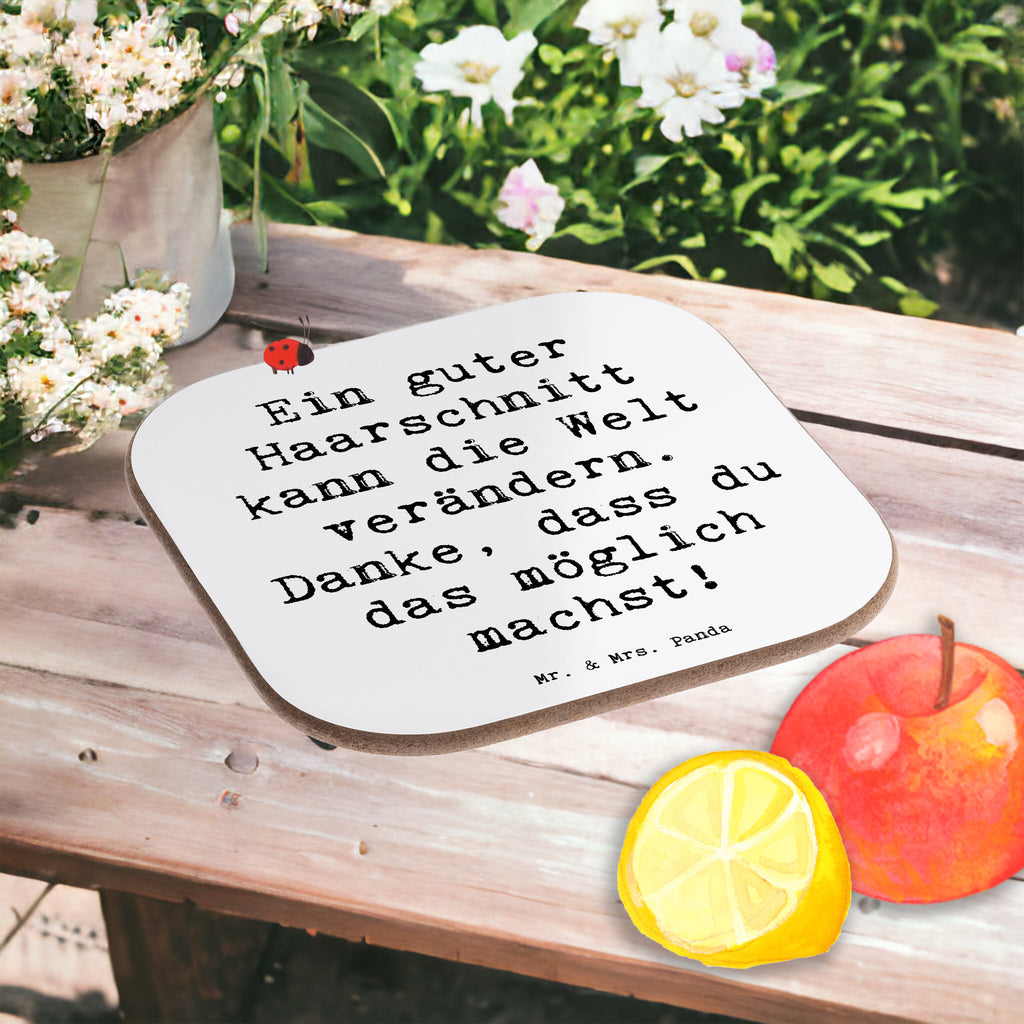 Ein guter
Haarschnitt
kann die Welt
verändern.
Danke, dass du
das möglich
machst!
Mr. & Mrs. Panda